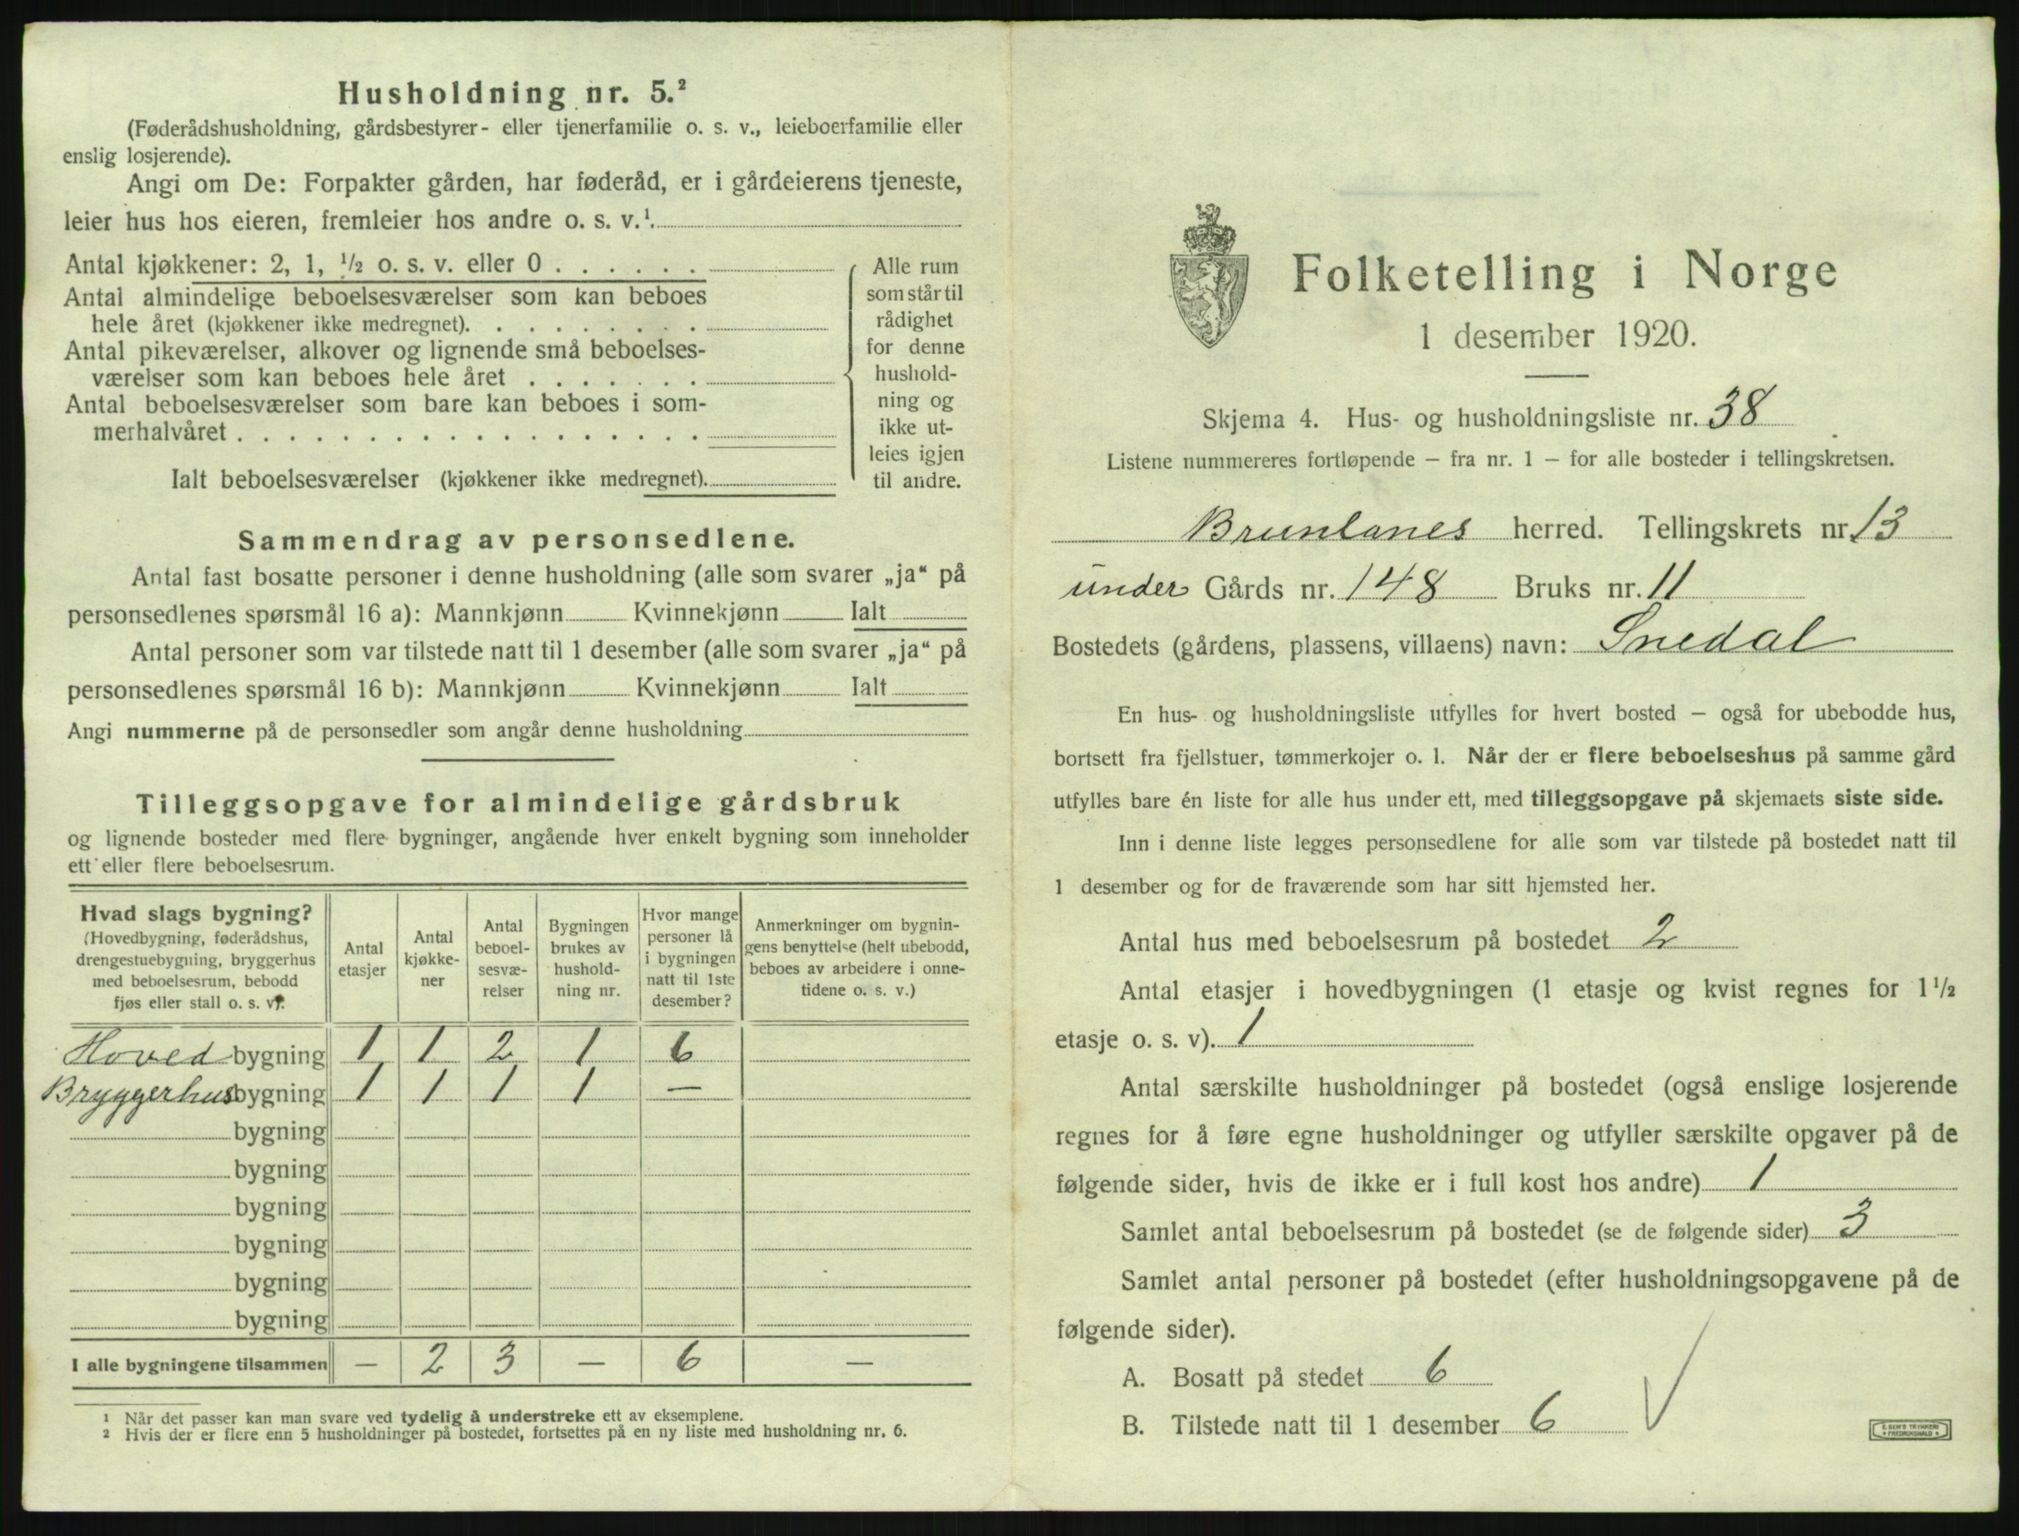 Husholdning nr. 5.²
(Føderådshusholdning, gårdsbestyrer- eller tjenerfamilie o. s. v., leieboerfamilie eller
enslig losjerende).
Angi om De: Forpakter gården, har føderåd, er i gårdeierens tjeneste,
leier hus hos eieren, fremleier hos andre o. s. v.¹.
Antal kjøkkener: 2, 1, ½ o. s. v. eller 0 . . . . . .
Antal almindelige beboelsesværelser som kan beboes
hele året (kjøkkener ikke medregnet). . . . . . . . .
Antal pikeværelser, alkover og lignende små beboelses-
værelser som kan beboes hele året . . . . . . .
Antal beboelsesværelser som bare kan beboes i som-
merhalvåret . . . . . . . . . . . . . . . . . .
Ialt beboelsesværelser (kjøkkener ikke medregnet).
Alle rum
som står til
rådighet
for denne
hushold-
ning og
ikke ut-
leies igjen
til andre.
Sammendrag av personsedlene.
Antal fast bosatte personer i denne husholdning (alle som svarer „ja“ på
personsedlenes spørsmål 16 a): Mannkjønn Kvinnekjønn Ialt
Antal personer som var tilstede natt til 1 desember (alle som svarer „ja“ på
personsedlenes spørsmål 16 b): Mannkjønn Kvinnekjønn Ialt
Angi nummerne på de personsedler som angår denne husholdning
Tilleggsopgave for almindelige gårdsbruk
og lignende bosteder med flere bygninger, angående hver enkelt bygning som inneholder
ett eller flere beboelsesrum.
Hvad slags bygning?
(Hovedbygning, føderådshus,
drengestuebygning, bryggerhus
med beboelsesrum, bebodd
fjøs eller stall o. s. v.
Antal
etasjer
Antal
kjøkke-
ner
Antal
beboel-
sesvæ-
relser
Bygningen
brukes av
hushold-
ning nr.
Hvor mange
personer lå
i bygningen
natt til 1ste
desember?
Anmerkninger om bygnin-
gens benyttelse (helt ubebodd,
beboes av arbeidere i onne-
tidene o. s. v.)
Hoved bygning 1 1 2 1 6
Bryggerhus bygning 1 1 1 1 —
bygning
bygning
bygning
bygning
bygning
bygning
I alle bygningene tilsammen — 2 3 — 6 —
¹ Når det passer kan man svare ved tydelig å understreke ett av eksemplene.
² Hvis der er flere enn 5 husholdninger på bostedet, fortsettes på en ny liste med husholdning nr. 6.
Folketelling i Norge
1 desember 1920.
Skjema 4. Hus- og husholdningsliste nr. 38
Listene nummereres fortløpende — fra nr. 1 — for alle bosteder i tellingskretsen.
Brunlanes herred. Tellingskrets nr. 13
under Gårds nr. 148 Bruks nr. 11
Bostedets (gårdens, plassens, villaens) navn: Snedal
En hus- og husholdningsliste utfylles for hvert bosted — også for ubebodde hus,
bortsett fra fjellstuer, tømmerkojer o. l. Når der er flere beboelseshus på samme gård
utfylles bare én liste for alle hus under ett, med tilleggsopgave på skjemaets siste side.
Inn i denne liste legges personsedlene for alle som var tilstede på bostedet natt til
1 desember og for de fraværende som har sitt hjemsted her.
Antal hus med beboelsesrum på bostedet 2
Antal etasjer i hovedbygningen (1 etasje og kvist regnes for 1½
etasje o. s. v). 1
Antal særskilte husholdninger på bostedet (også enslige losjerende
regnes for å føre egne husholdninger og utfyller særskilte opgaver på de
følgende sider, hvis de ikke er i full kost hos andre) 1
Samlet antal beboelsesrum på bostedet (se de følgende sider) 3
Samlet antal personer på bostedet (efter husholdningsopgavene på de
følgende sider).
A. Bosatt på stedet 6
B. Tilstede natt til 1 desember 6